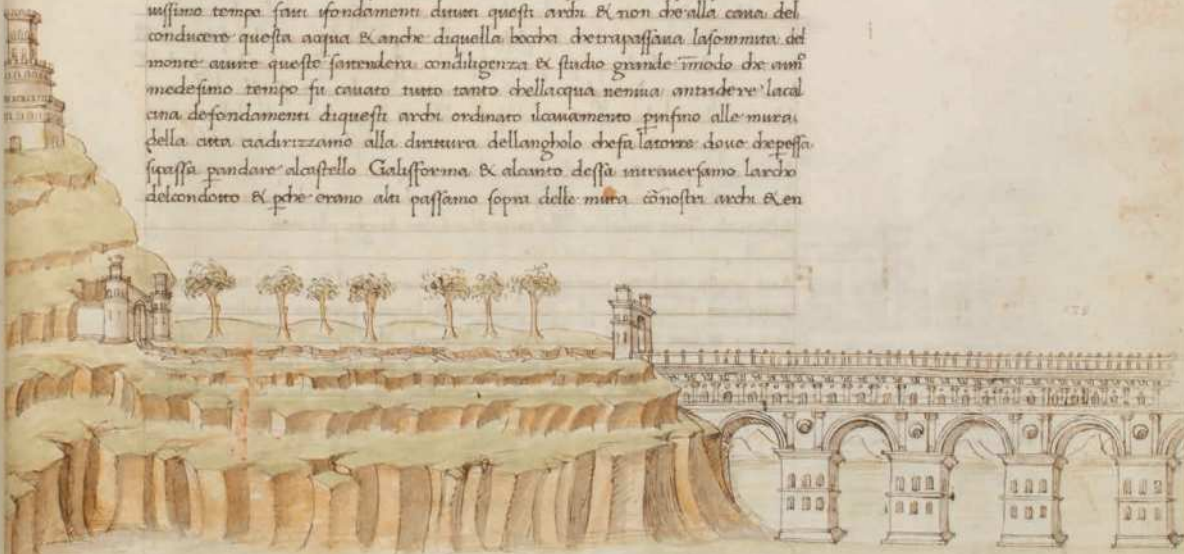 uissimo tempo fatti ifondamenti ditutti questi archi & non che alla caua del
conducere questa acqua & anche diquella boccha chetrapassaua lasommita del
monte atutte queste sattendeua condiligenza & studio grande imodo che
medesimo tempo fu cauato tutto tanto chellacqua neniua antridere lacal
cina defondamenti diquesti archi ordinato ilcauamento pinfino alle mura
della citta ciadirizzamo alla dirittura dellangholo chefa latorre doue chepessa
sipassa pandare alcastello Galisforma & alcanto dessa intrauersamo larcho
delcondotto & pche erano alti passamo sopra delle mura cōnostri archi & en